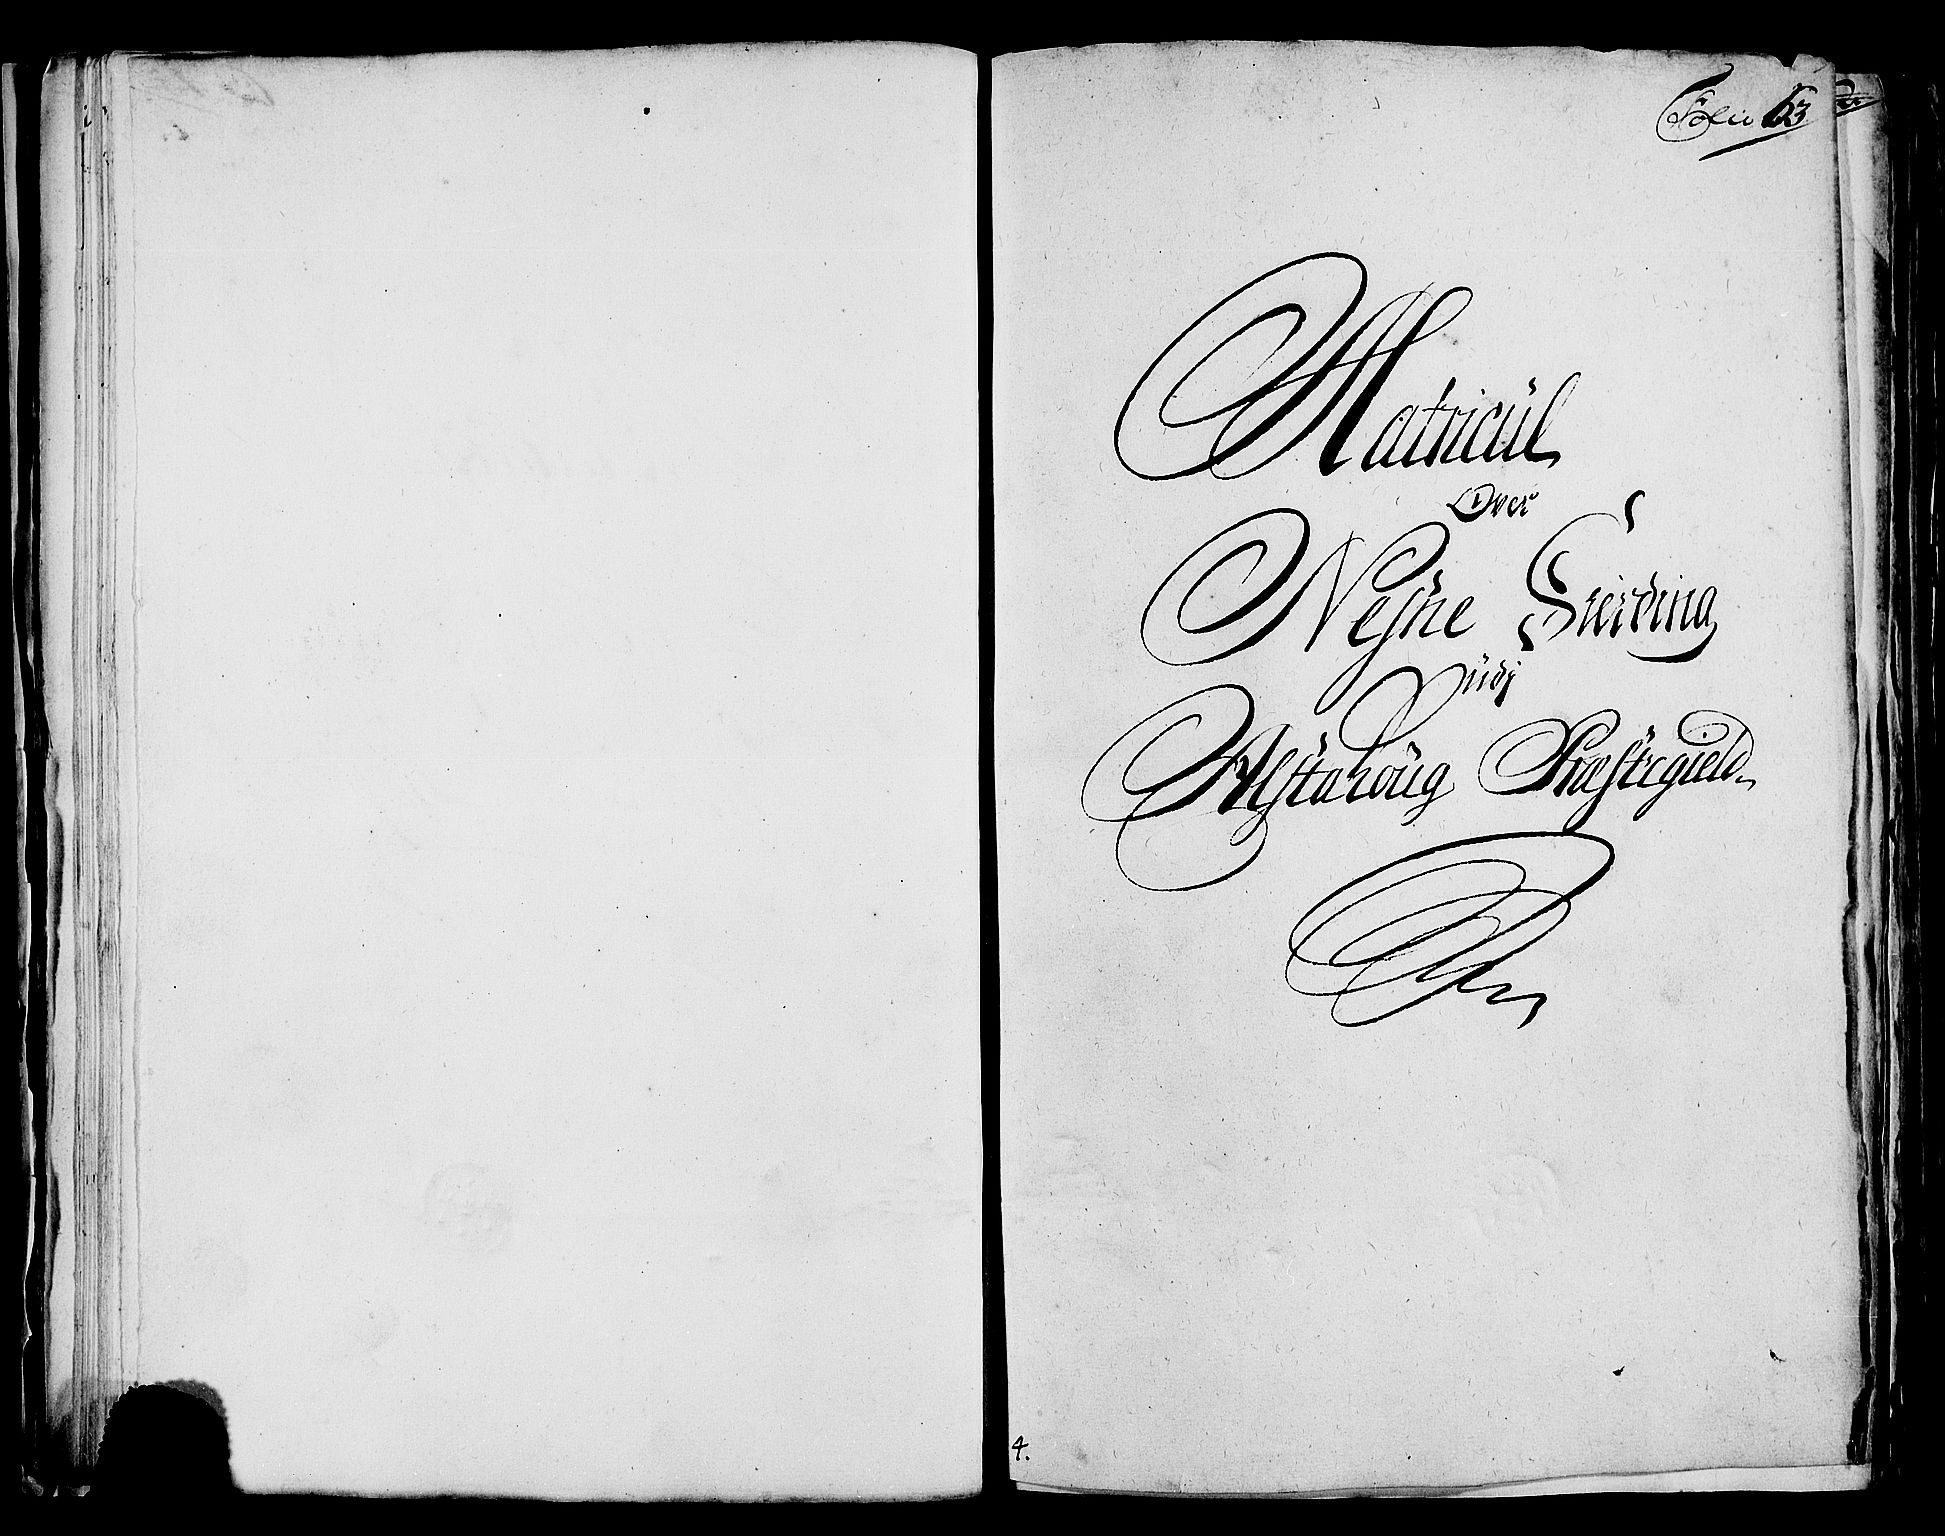 Folio 63
Matricül
Over
Neſne Fierding
Üdj
Alſtahoüg Præſtegield
4.